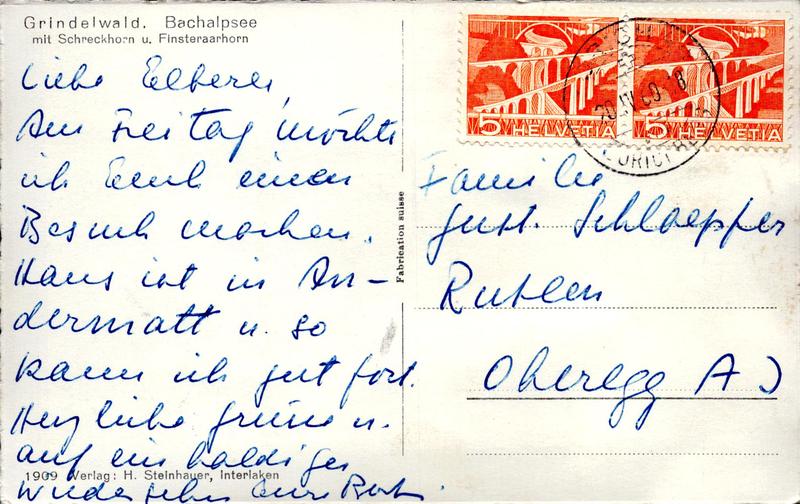 Grindelwald. Bachalpsee
mit Schreckhorn u. Finsteraarhorn
Liebe Elberei,
Am Freitag möchte
ich Euch einen
Besuch machen.
Hans ist in An-
dermatt u. so
kann ich gut fort.
Herzliche Grüsse u.
auf ein baldiges
Wiedersehn Eure
1909 Verlag: H. Steinhauer, Interlaken
Fabrication suisse
5 HELVETIA
5 HELVETIA
Familie
Gust. Schlaepfer
Oberegg A J